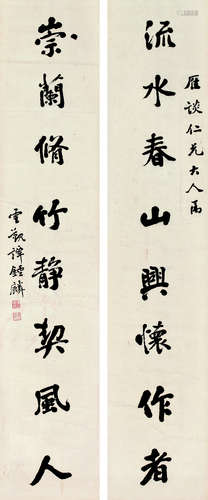 雁谈仁兄大人属
流水春山興懷作者
崇蘭脩竹靜契風人
雲觀譚鍾麟